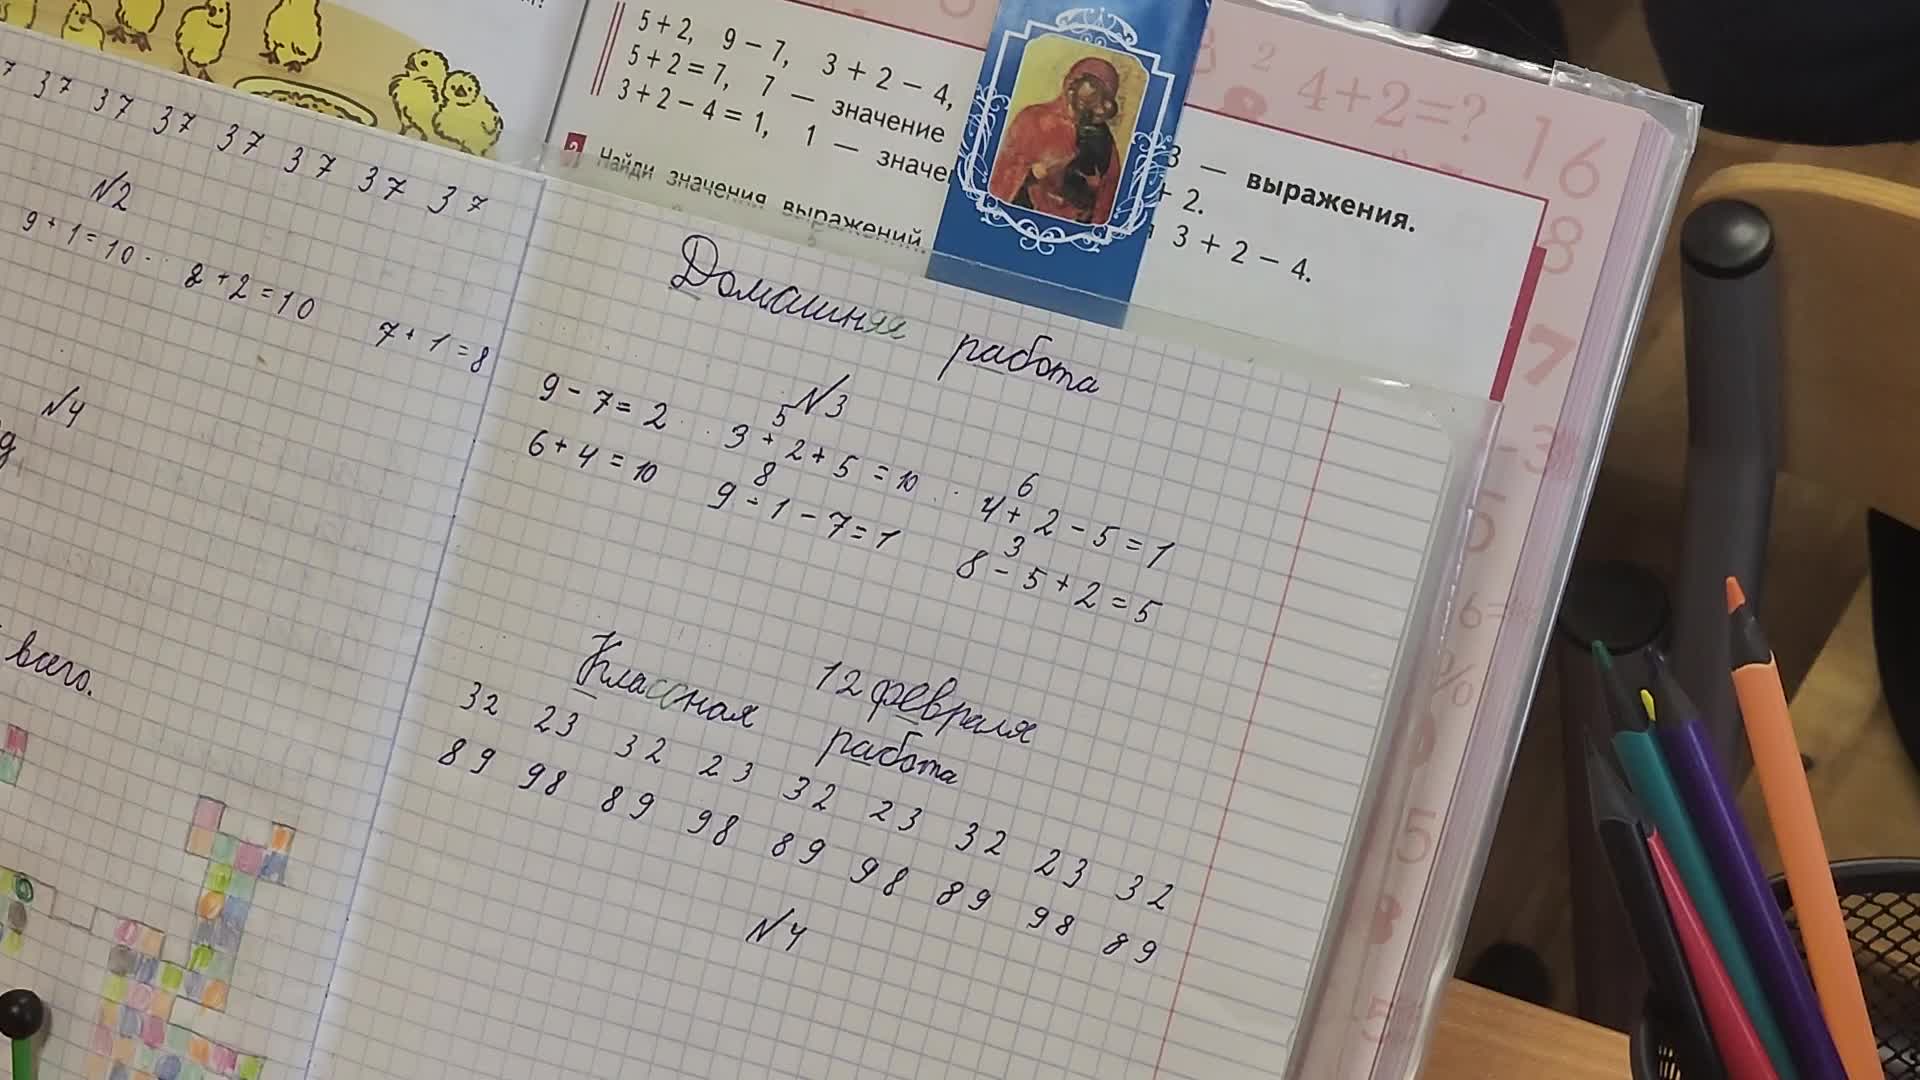 5 + 2, 9 − 7, 3 + 2 − 4,
3 — выражения.
5 + 2 = 7, 7 — значение
+ 2.
3 + 2 − 4 = 1, 1 —
3 + 2 − 4.
Найди значения выражений.
4+2=?
16
8
7
37 37 37 37 37 37 37
N2
9 + 1 = 10 8 + 2 = 10 7 + 1 = 8
N4
всего.
Домашняя работа
N3
5
9 − 7 = 2 3 + 2 + 5 = 10
6
4 + 2 − 5 = 1
8
6 + 4 = 10 9 − 1 − 7 = 1
3
8 − 5 + 2 = 5
12 февраля
Классная работа
32 23 32 23 32 23 32 23 32
89 98 89 98 89 98 89 98 89
N4